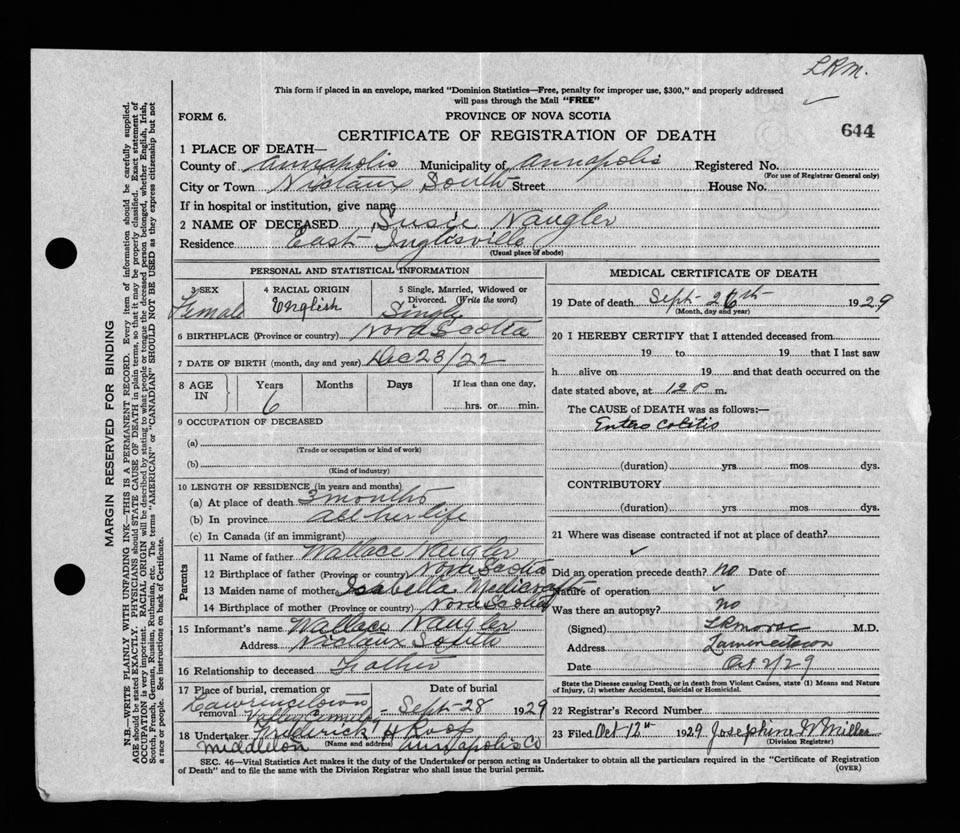 L.R.M.
This form if placed in an envelope, marked "Dominion Statistics—Free, penalty for improper use, $300," and properly addressed
will pass through the Mail "FREE"
FORM 6. PROVINCE OF NOVA SCOTIA
CERTIFICATE OF REGISTRATION OF DEATH 644
1 PLACE OF DEATH—
County of Annapolis Municipality of Annapolis Registered No.
(For use of Registrar General only)
City or Town Nictaux South Street House No.
If in hospital or institution, give name
2 NAME OF DECEASED Susie Naugler
Residence East Inglisville
(Usual place of abode)
PERSONAL AND STATISTICAL INFORMATION
3 SEX Female
4 RACIAL ORIGIN English
5 Single, Married, Widowed or
Divorced. (Write the word)
Single
6 BIRTHPLACE (Province or country) Nova Scotia
7 DATE OF BIRTH (month, day and year) Dec 23/22
8 AGE IN Years Months Days If less than one day,
6 hrs. or min.
9 OCCUPATION OF DECEASED
(a)
(Trade or occupation or kind of work)
(b)
(Kind of industry)
10 LENGTH OF RESIDENCE (in years and months)
(a) At place of death 3 months
(b) In province all her life
(c) In Canada (if an immigrant)
Parents
11 Name of father Wallace Naugler
12 Birthplace of father (Province or country) Nova Scotia
13 Maiden name of mother Isabella Medicraft
14 Birthplace of mother (Province or country) Nova Scotia
15 Informant's name Wallace Naugler
Address Nictaux South
16 Relationship to deceased Father
17 Place of burial, cremation or removal Date of burial
Lawrencetown
Sept-28 1929
18 Undertaker Frederick H Roop
(Name and address)
Middleton Annapolis Co
MEDICAL CERTIFICATE OF DEATH
19 Date of death Sept-26th 1929
(Month, day and year)
20 I HEREBY CERTIFY that I attended deceased from
19 to 19 that I last saw
h alive on 19 and that death occurred on the
date stated above, at 12 P m.
The CAUSE of DEATH was as follows:—
Entero Colitis
(duration) yrs. mos. dys.
CONTRIBUTORY
(duration) yrs. mos. dys.
21 Where was disease contracted if not at place of death?
Did an operation precede death? no Date of
Nature of operation
Was there an autopsy? no
(Signed) L R Morse M.D.
Address Lawrencetown
Date Oct 2/29
State the Disease causing Death, or in death from Violent Causes, state (1) Means and Nature
of Injury, (2) whether Accidental, Suicidal or Homicidal.
22 Registrar's Record Number
23 Filed Oct 12th 1929 Josephine W Miller
(Division Registrar)
SEC. 46—Vital Statistics Act makes it the duty of the Undertaker or person acting as Undertaker to obtain all the particulars required in the "Certificate of Registration
of Death" and to file the same with the Division Registrar who shall issue the burial permit.
(OVER)
MARGIN RESERVED FOR BINDING
N.B.—WRITE PLAINLY WITH UNFADING INK—THIS IS A PERMANENT RECORD. Every item of information should be carefully supplied.
AGE should be stated EXACTLY. PHYSICIANS should STATE CAUSE OF DEATH in plain terms, so that it may be properly classified. Exact statement of
OCCUPATION is very important. RACIAL ORIGIN will be described by stating to what people or tongue the deceased person belonged, whether English, Irish,
Scotch, French, German, Russian, Ruthenian, etc. The terms "AMERICAN" or "CANADIAN" SHOULD NOT BE USED as they express citizenship but not
a race or people. See instructions on back of Certificate.